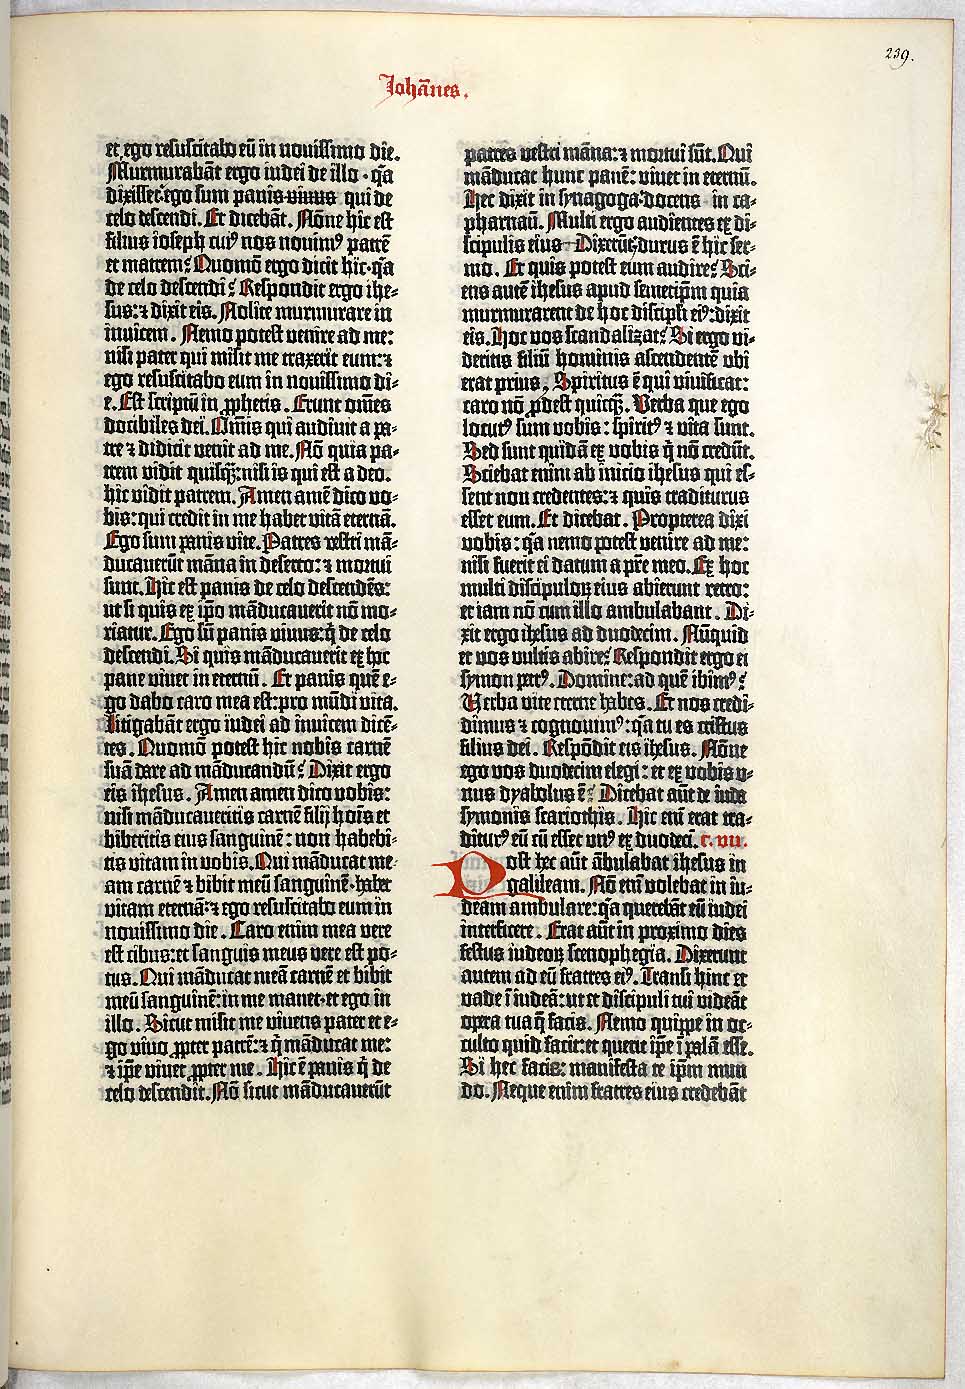 239.
Johānes.
et ego resuscitabo eū in novissimo die.
Murmurabāt ergo iudei de illo · q̄a
dixisset ego sum panis vivus qui de
celo descendi. Et dicebāt. Nōne hic est
filius ioseph cui⁹ nos novim⁹ patrē
et matrem? Quomō ergo dicit hic · q̄a
de celo descendi? Respondit ergo ihe-
sus: ⁊ dixit eis. Nolite murmurare in
invicem. Nemo potest venire ad me:
nisi pater qui misit me traxerit eum: ⁊
ego resuscitabo eum in novissimo di-
e. Est scriptū in ꝓphetis. Erunt om̄es
docibiles dei. Om̄is qui audivit a pa-
tre ⁊ didicit venit ad me. Nō quia pa-
trem vidit quisq̄: nisi is qui est a deo.
hic vidit patrem. Amen amē dico vo-
bis: qui credit in me habet vitā eternā.
Ego sum panis vite. Patres vestri mā-
ducaverūt māna in deserto: ⁊ mortui
sunt. Hic est panis de celo descendēs:
ut si quis ex ip̄o māducaverit nō mo-
riatur. Ego sū panis vivus: q̄ de celo
descendi. Si quis māducaverit ex hoc
pane vivet in eternū. Et panis quē e-
go dabo caro mea est: pro mūdi vita.
Litigabāt ergo iudei ad invicem dicē-
tes. Quomō potest hic nobis carnē
suā dare ad māducandū? Dixit ergo
eis ihesus. Amen amen dico vobis:
nisi māducaveritis carnē filij hoīs et
biberitis eius sanguinē: non habebi-
tis vitam in vobis. Qui māducat me-
am carnē ⁊ bibit meū sanguinē · habet
vitam eternā: ⁊ ego resuscitabo eum in
novissimo die. Caro enim mea vere
est cibus: et sanguis meus vere est po-
tus. Qui māducat meā carnē et bibit
meū sanguinē: in me manet · et ego in
illo. Sicut misit me vivens pater et e-
go vivo ꝓpter patrē: ⁊ q̄ māducat me:
⁊ ip̄e vivet ꝓpter me. Hic ē panis q̄ de
celo descendit. Nō sicut māducaverūt
patres vestri māna: ⁊ mortui sūt. Qui
māducat hunc panē: vivet in eternū.
Hec dixit in synagoga · docens in ca-
pharnaū. Multi ergo audientes ex di-
scipulis eius Dixerūt: durus ē hic ser-
mo. Et quis potest eum audire? Sci-
ens autē ihesus apud semetip̄m quia
murmurarent de hoc discipli ei⁹: dixit
eis. Hoc vos scandalizat? Si ergo vi-
deritis filiū hominis ascendentē ubi
erat prius? Spiritus ē qui vivificat:
caro nō ꝓdest quicq̄. Verba que ego
locut⁹ sum vobis: spirit⁹ ⁊ vita sunt.
Sed sunt quidā ex vobis q̄ nō credūt.
Sciebat enim ab inicio ihesus qui es-
sent non credentes: ⁊ quis traditurus
esset eum. Et dicebat. Propterea dixi
vobis: q̄a nemo potest venire ad me:
nisi fuerit ei datum a p̄re meo. Ex hoc
multi discipuloꝝ eius abierunt retro:
et iam nō cum illo ambulabant. Di-
xit ergo ihesus ad duodecim. Nūquid
et vos vultis abire? Respondit ergo ei
symon petr⁹. Domine: ad quē ibim⁹?
Verba vite eterne habes. Et nos credi-
dimus ⁊ cognovim⁹: q̄a tu es cristus
filius dei. Respōdit eis ihesus. Nōne
ego vos duodecim elegi: et ex vobis v-
nus dyabolus ē? Dicebat aūt de iuda
symonis scariothis. Hic em̄ erat tra-
ditur⁹ eū cū esset un⁹ ex duodeci. c. vii.
Post hec aūt ābulabat ihesus in
galileam. Nō em̄ volebat in iu-
deam ambulare: q̄a querebāt eū iudei
interficere. Erat aūt in proximo dies
festus iudeoꝝ scenophegia. Dixerunt
autem ad eū fratres ei⁹. Transi hinc et
vade ī iudeā: ut et discipuli tui videāt
opera tua q̄ facis. Nemo quippe in oc-
culto quid facit: et querit ip̄e ī palā esse.
Si hec facis: manifesta te ip̄m mun
do. Neque enim fratres eius credebāt